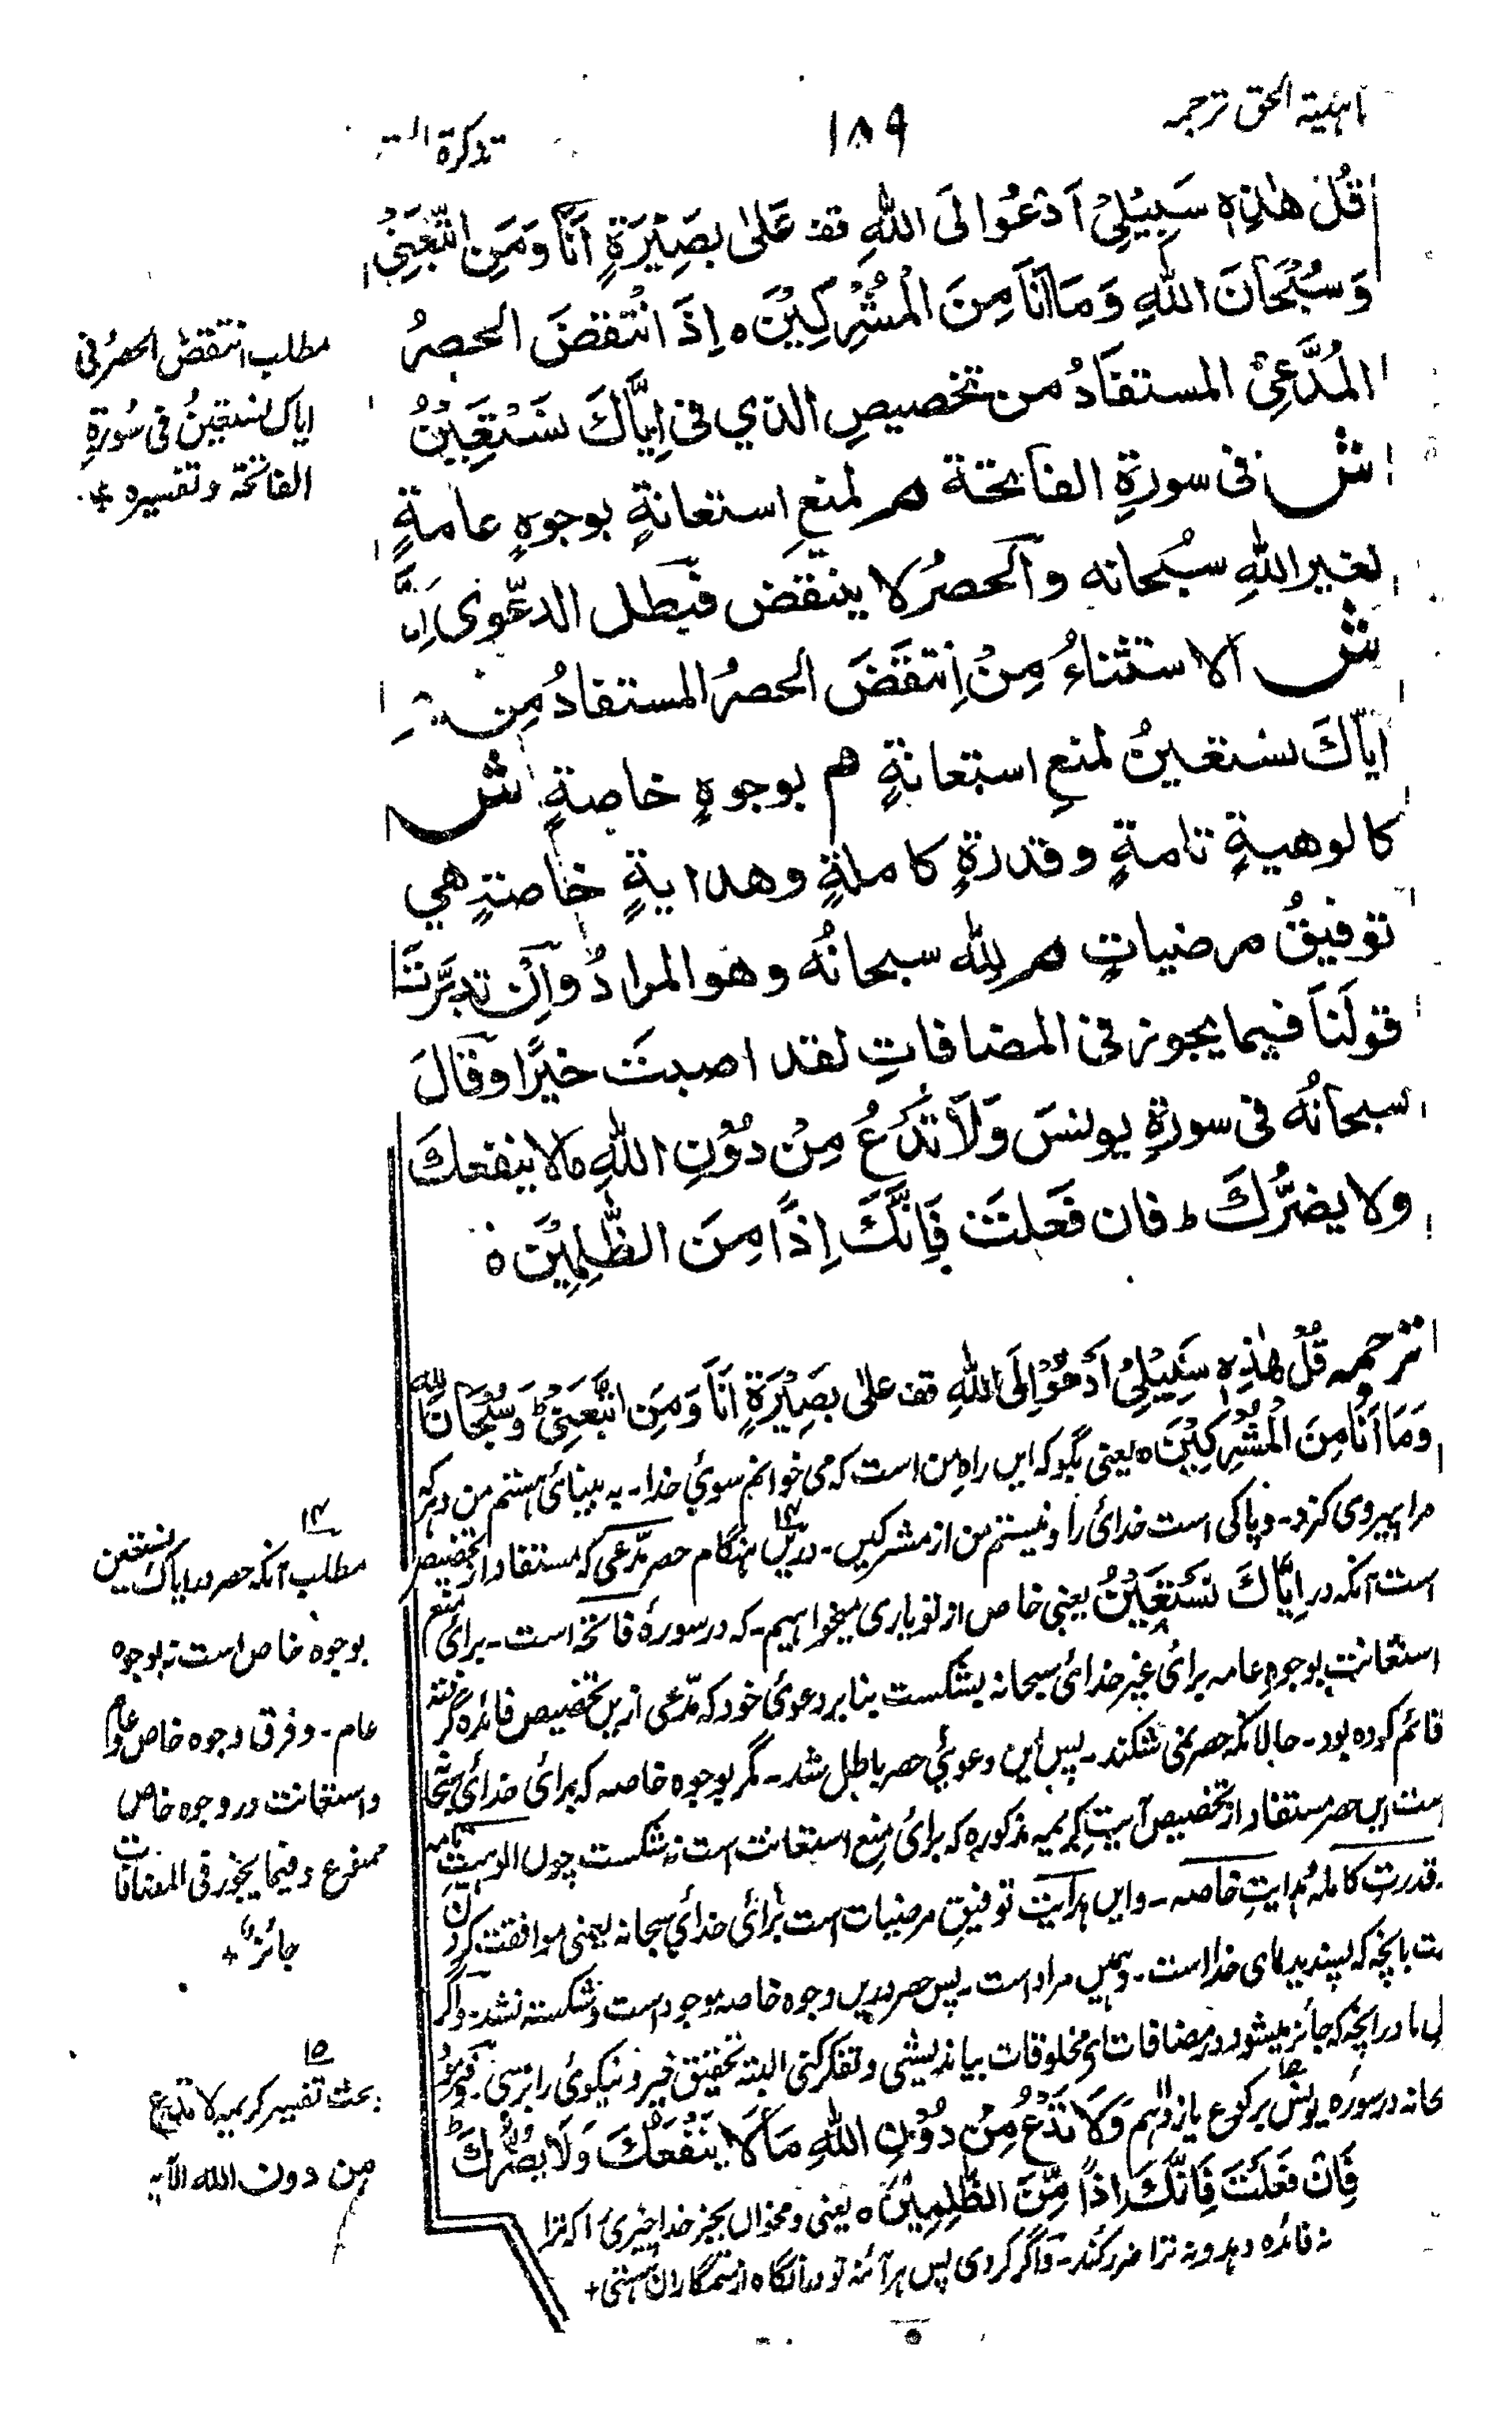 ترجمہ
۱۸۹
تذکرة
قُلْ هٰذِهٖ سَبِيْلِيْ اَدْعُوْا لَى اللهِ قف عَلىٰ بَصِيْرَةٍ اَنَا وَمَنِ اتَّبَعَنِيْ
وَسُبْحَانَ اللهِ وَمَا اَنَا مِنَ الْمُشْرِكِيْنَ ٥ اِذَ انْتَقَضَ الحصرُ
المُدَّعىٰ المستفادُ من تخصيصِ الذي في اِيَّاكَ نَسْتَعِيْنُ
ش فی سورةِ الفاتحة هم لمنعِ استعانةٍ بوجوهٍ عامةٍ
لغير اللهِ سُبحانه والحصرُ لا ينتقض فبطل الدعوى اِلَّا
ش الاستثناءُ مِنْ اِنتقَضَ الحصرُ المستفادُ مِن
اياّكَ نستعينُ لمنعِ استعانةٍ هم بوجوهٍ خاصةٍ ش
كالوهيةٍ تامةٍ وقدرةٍ كاملةٍ وهدايةٍ خاصةٍ هي
توفيقُ مرضياتٍ هم لِلّٰه سبحانُه وهو المرادُ واِن تدبَّرتَ
قولَنا فيما يجوز فی المضافاتِ لقد اصبتَ خيرًا وقالَ
سبحانُه فی سورةِ يونسَ وَلَا تَدْعُ مِنْ دُوْنِ اللهِ مالا ينفعك
ولا يضرُّكَ ط فان فَعَلتَ فَاِنَّكَ اِذًا مِنَ الظّٰلِمِيْنَ ٥
مطلب انتقض الحصرُ فی
اياك نستعينُ فی سُورةِ
الفاتحة وتفسيره
ترجمہ قُلْ هٰذِهٖ سَبِيْلِيْ اَدْعُوْا اِلَى اللهِ قف على بَصِيْرَةٍ اَنَا وَمَنِ اتَّبَعَنِيْ ط وَسُبْحَانَ اللهِ
وَمَا اَنَا مِنَ الْمُشْرِكِيْنَ ٥ یعنی بگو کہ این راہِ من است کہ می خوانم سوئِ خدا۔ بہ بینائی ہستم من و ہرکہ
مرا پیروی کند۔ و پاکی است خدائ را و نیستم من از مشرکین۔ درین ہنگام حصر مدّعی کہ مستفاد از تخصیص
است آنکہ در اِیَّاكَ نَسْتَعِيْنُ یعنی خاص از تو یاری میخواہیم۔ کہ در سورۂ فاتحہ است۔ برائ منع
استعانت بوجوہِ عامہ برائ غیرِ خدائ سبحانہ بشکست بنابر دعوئ خود کہ مدّعی ازین تخصیص فائدہ گرفتہ
قائم کردہ بود۔ حالانکہ حصر نمی شکند۔ پس این دعوئ حصر باطل شد۔ مگر بوجوہ خاصہ کہ برائ خدائ
است این حصر مستفاد از تخصیص آیتِ کریمہ مذکورہ کہ برائ منعِ استعانت است نہ شکست چون الوہیتِ تامہ
قدرتِ کاملہ و ہدایتِ خاصہ۔ و این ہدایت توفیقِ مرضیات است برائ خدائ سبحانہ یعنی موافقت کردن
بانچہ کہ پسندیدہای خدا است۔ و ہمین مراد است۔ پس حصر درین وجوہ خاصہ موجود است و شکستہ نشد۔ و اگر
ما درانچہ کہ جائز میشود در مضافات مخلوقات بیاندیشی و تفکر کنی البتہ تحقیق خیر و نیکوئ را برسی
در سورہ یونس بر کوع یازدہم وَلَا تَدْعُ مِنْ دُوْنِ اللهِ مَا لَا يَنْفَعُكَ وَلَا يَضُرُّكَ ط
فَاِنْ فَعَلْتَ فَاِنَّكَ اِذًا مِّنَ الظّٰلِمِيْنَ ٥ یعنی و مخوان بجز خدا چیزیرا کہ ترا
نہ فائدہ دہد و نہ ترا ضرر کند۔ و اگر کردی پس ہر آئنہ تو در آنگاہ از ستمگاران ہستی+
۱۴
مطلب آنکہ حصر در ایاك نستعین
بوجوہ خاص است نہ بوجوہ
عام۔ و فرق وجوہ خاص و عام
و استعانت در وجوہ خاص
ممنوع و فیما یجوز فی المضافات
جائز+
۱۵
بحث تفسیر کریمہ لا تدع
من دون الله الآیہ